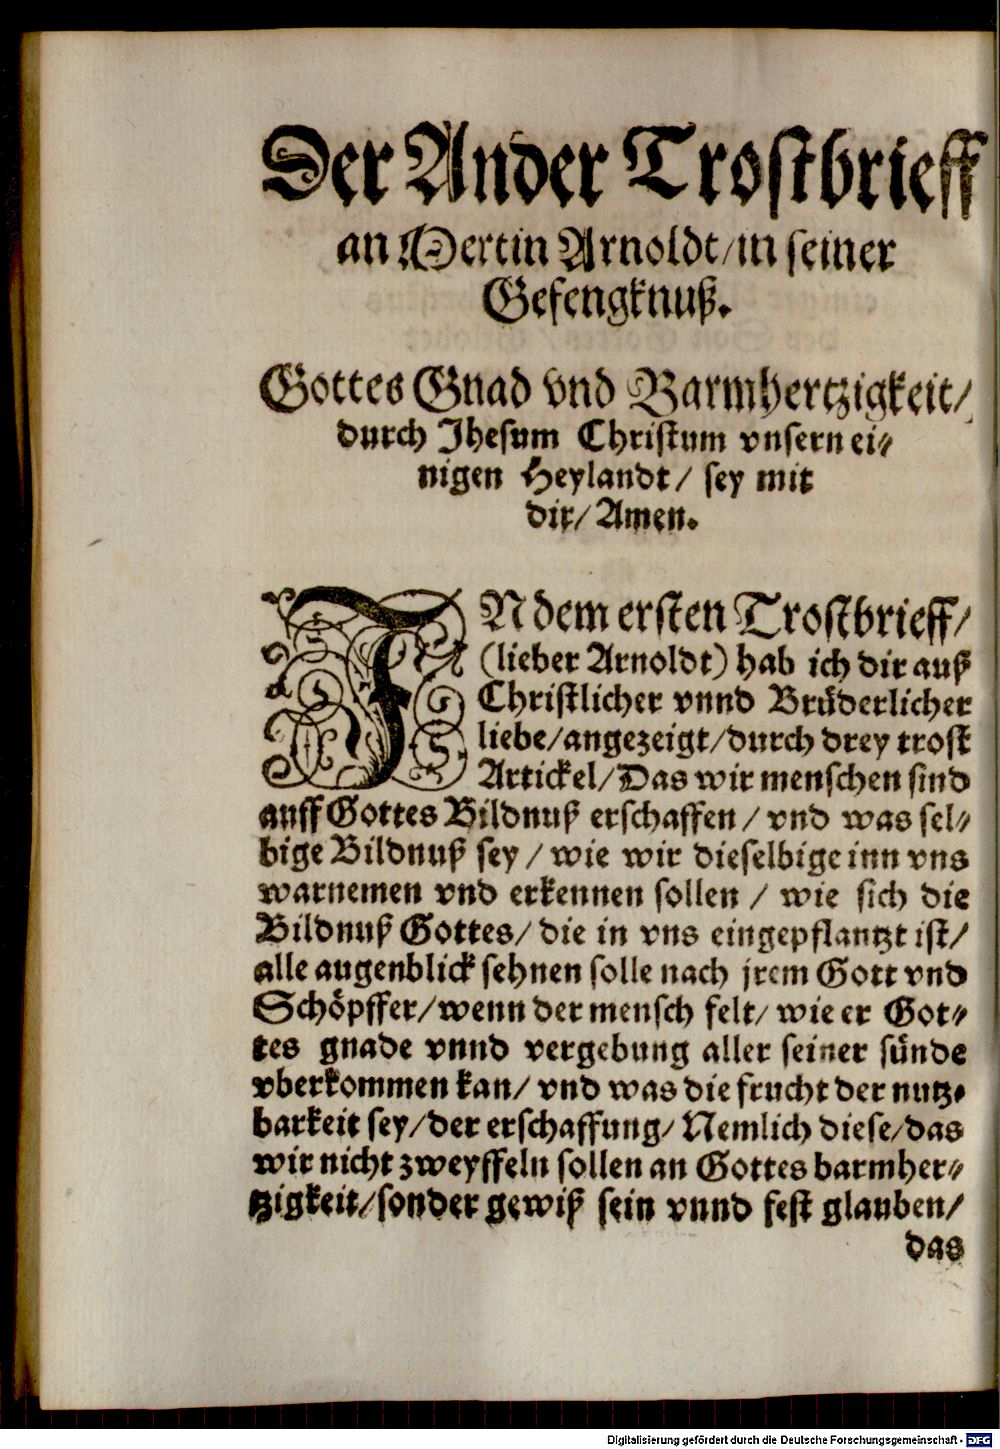 Der Ander Trostbrieff
an Mertin Arnoldt/in seiner
Gefengknuß.
Gottes Gnad vnd Barmhertzigkeit/
durch Jhesum Christum vnsern ei⸗
nigen Heylandt/ sey mit
dir/ Amen.
IN dem ersten Trostbrieff/
(lieber Arnoldt) hab ich dir auß
Christlicher vnnd Brüderlicher
liebe/angezeigt/durch drey trost
Artickel/Das wir menschen sind
auff Gottes Bildnuß erschaffen/ vnd was sel⸗
bige Bildnuß sey/ wie wir dieselbige inn vns
warnemen vnd erkennen sollen/ wie sich die
Bildnuß Gottes/ die in vns eingepflantzt ist/
alle augenblick sehnen solle nach jrem Gott vnd
Schöpffer/wenn der mensch felt/ wie er Got⸗
tes gnade vnnd vergebung aller seiner sünde
vberkommen kan/ vnd was die frucht der nutz⸗
barkeit sey/der erschaffung/ Nemlich diese/das
wir nicht zweyffeln sollen an Gottes barmher⸗
tzigkeit/sonder gewiß sein vnnd fest glauben/
das
Digitalisierung gefördert durch die Deutsche Forschungsgemeinschaft - DFG